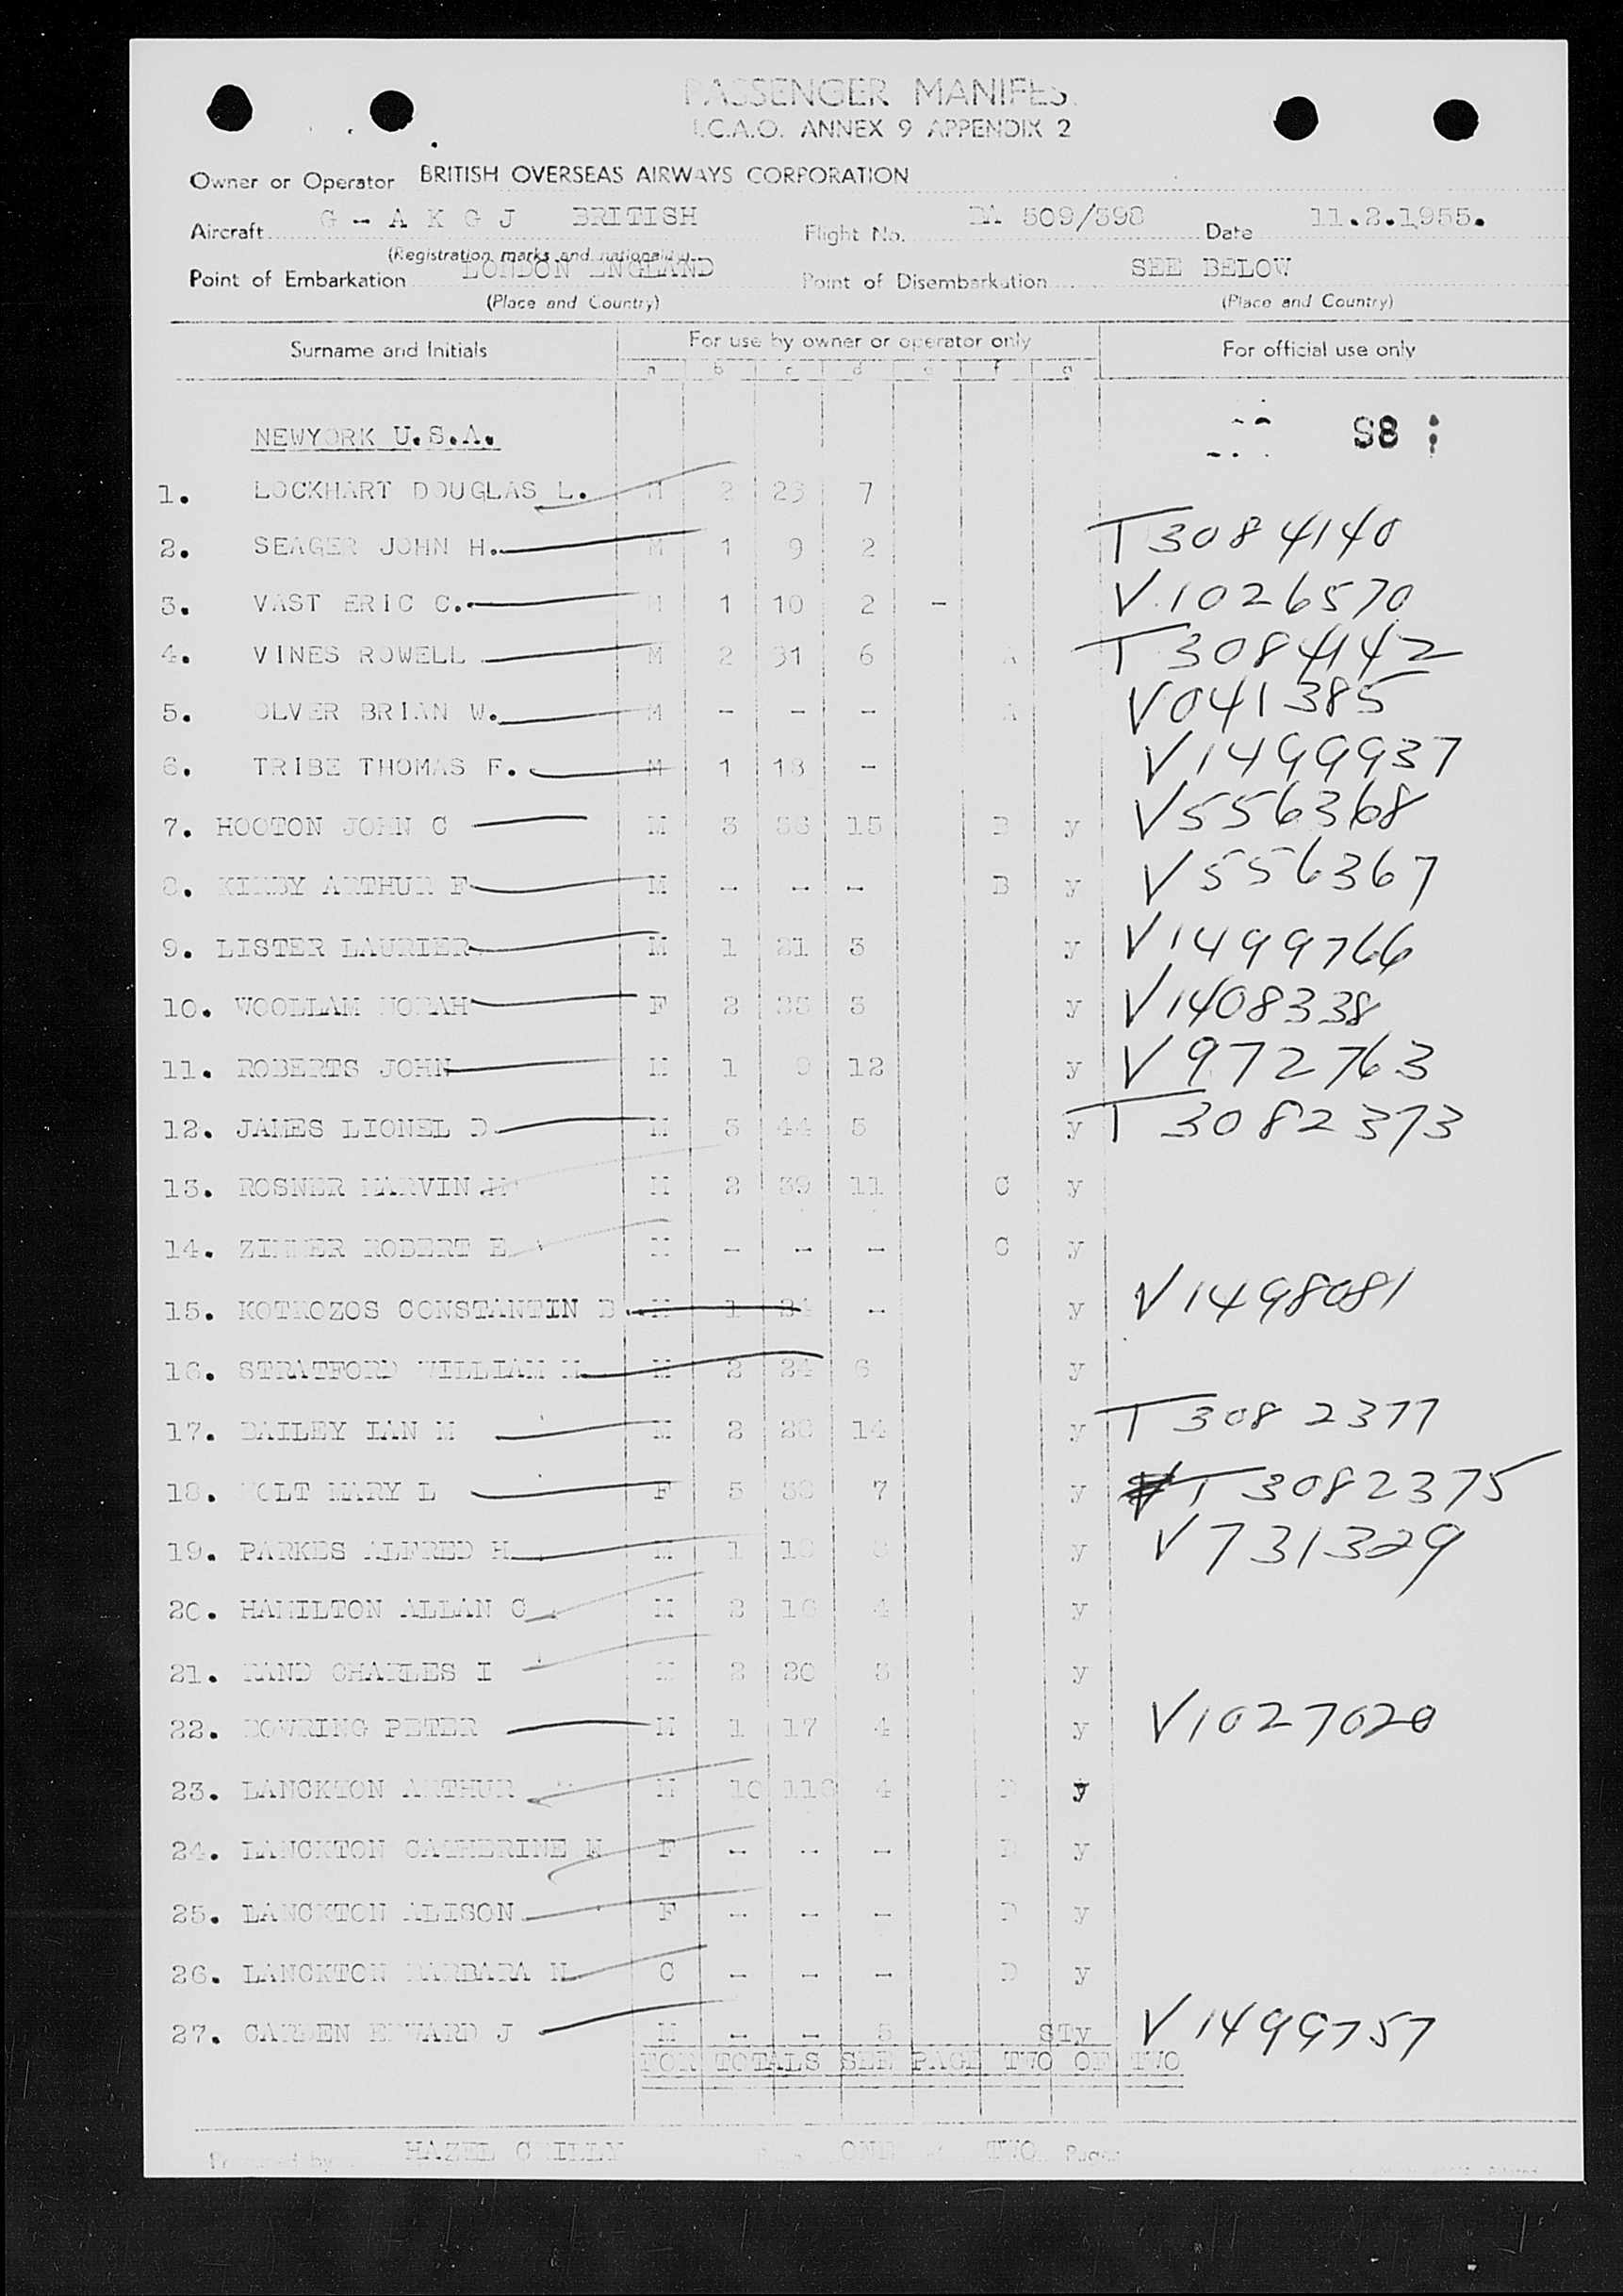 PASSENGER MANIFES
I.C.A.O. ANNEX 9 APPENDIX 2
Owner or Operator BRITISH OVERSEAS AIRWAYS CORPORATION
Aircraft G - A K G J BRITISH Flight No. BA 509/598 Date 11.2.1955.
(Registration marks and nationality)
Point of Embarkation LONDON ENGLAND Point of Disembarkation SEE BELOW
(Place and Country) (Place and Country)
Surname and Initials For use by owner or operator only For official use only
a b c d e f g
NEWYORK U.S.A. S8
1. LOCKHART DOUGLAS L. M 2 23 7
2. SEAGER JOHN H. M 1 9 2 T3084140
3. VAST ERIC C. M 1 10 2 - V1026570
4. VINES ROWELL M 2 31 6 A T3084142
5. OLVER BRIAN W. M - - - A V041385
6. TRIBE THOMAS F. M 1 18 - V1499937
7. HOOTON JOHN C M 3 15 B y V556368
8. KIRBY ARTHUR F M - - - B y V556367
9. LISTER LAURIER M 1 21 3 y V1499766
10. WOOLLAM NORAH F 2 35 5 y V1408338
11. ROBERTS JOHN M 1 9 12 y V972763
12. JAMES LIONEL D M 5 44 5 y T3082373
13. ROSNER MARVIN M M 2 39 11 C y
14. ZIMMER ROBERT E M - - - C y
15. CONSTANTIN D M 1 - y V1498081
16. STRATFORD WILLIAM M M 2 24 6 y
17. BAILEY IAN M M 2 28 14 y T3082377
18. MARY L F 5 7 y T3082375
19. PARKES ALFRED H M 1 y V731329
20. HAMILTON ALLAN C M 2 16 4 y
21. RAND CHARLES I M 2 20 y
22. BOWRING PETER M 1 17 4 y V1027020
23. LANCKTON ARTHUR M 10 4 D y
24. LANCKTON CATHERINE M F - - - D y
25. LANCKTON ALISON F - - - D y
26. LANCKTON BARBARA N C - - - D y
27. CARDEN EDWARD J M - - 5 STy V1499757
FOR TOTALS SEE PAGE TWO OF TWO
Prepared by HAZEL Page ONE of TWO Pages